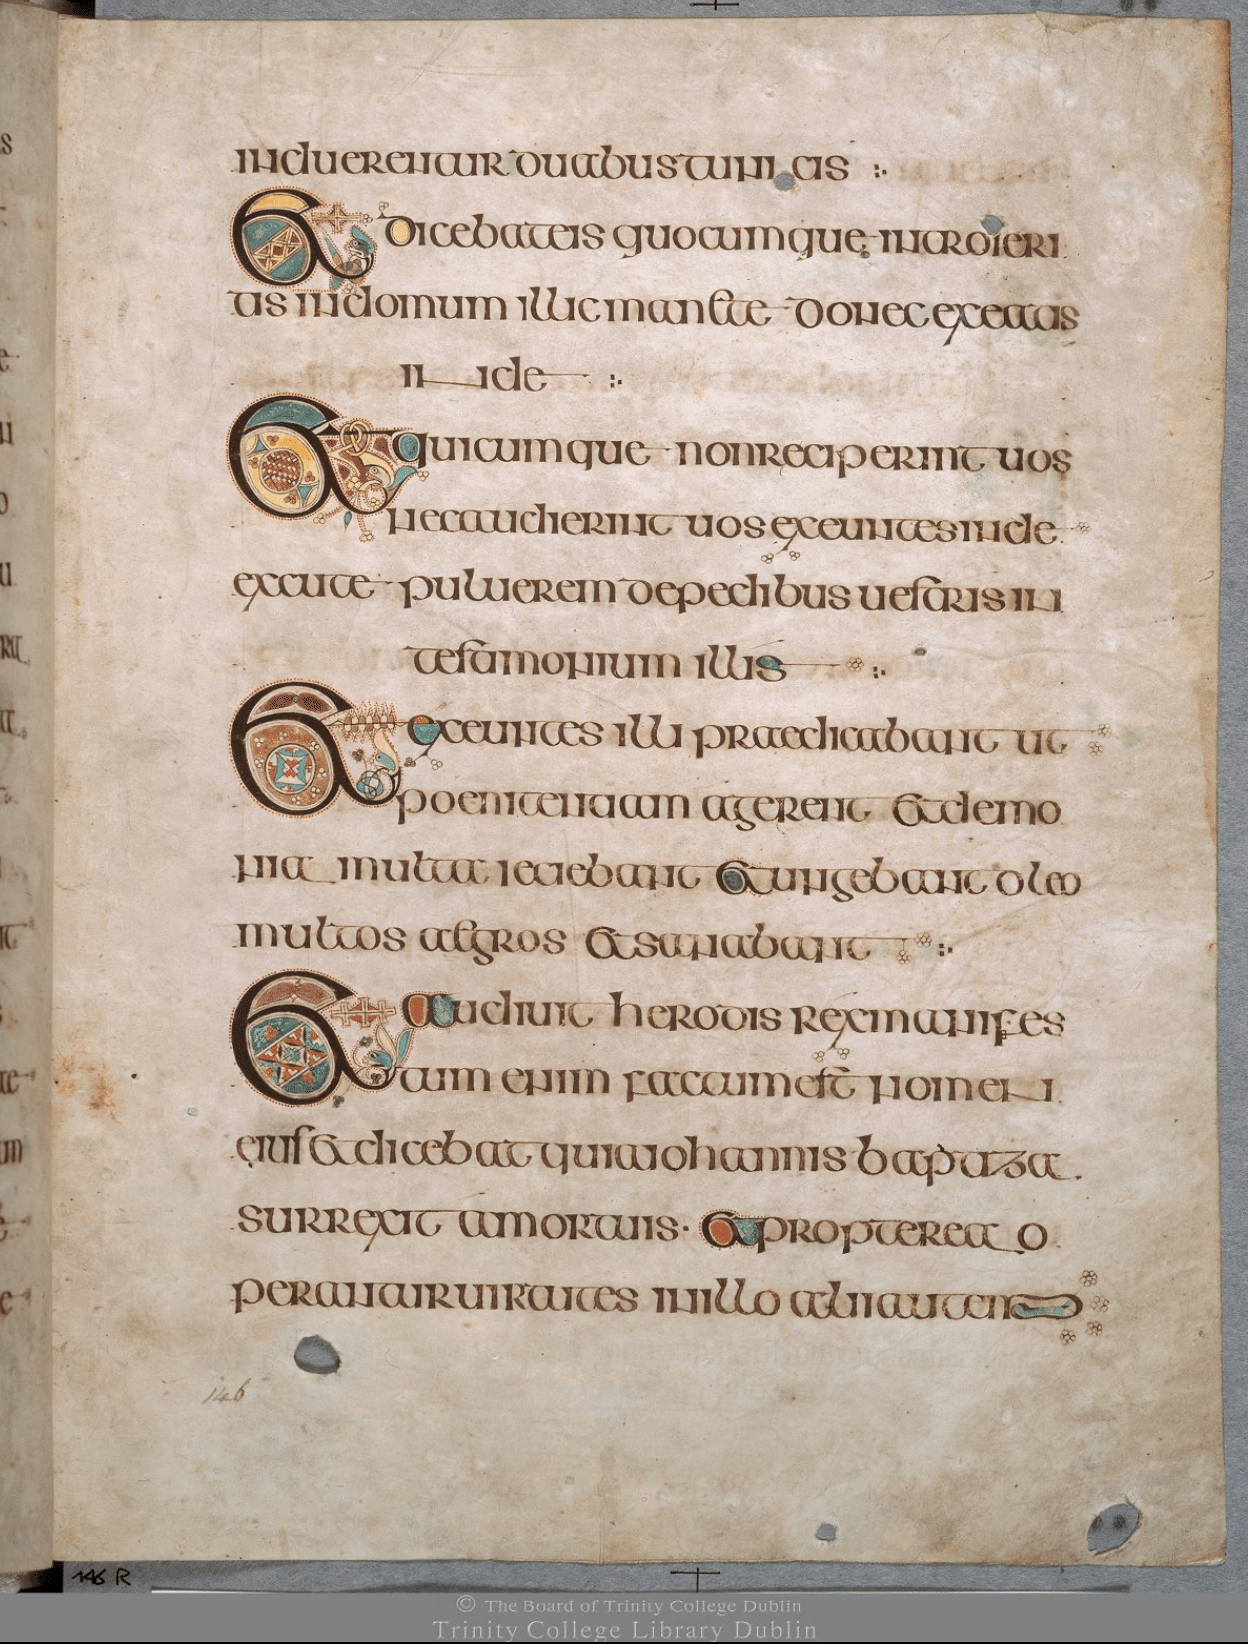 induerentur duabus tunicis
Et dicebat eis quocumque introieri
tis in domum illic manete donec exeatis
inde
Et quicumque non reciperint uos
nec audierint uos exeuntes inde
excutite puluerem de pedibus uestris in
testimonium illis
Et exeuntes illi praedicabant ut
poenitentiam agerent et demo
nia multa ieciebant et ungebant oleo
multos aegros et sanabant
Et audiuit herodis rex manifes
tum enim factum est nomen
eius et dicebat quia iohannis baptiza
surrexit a mortuis · et propterea o
perantur uirtutes in illo alii autem
146
146 R
© The Board of Trinity College Dublin
Trinity College Library Dublin